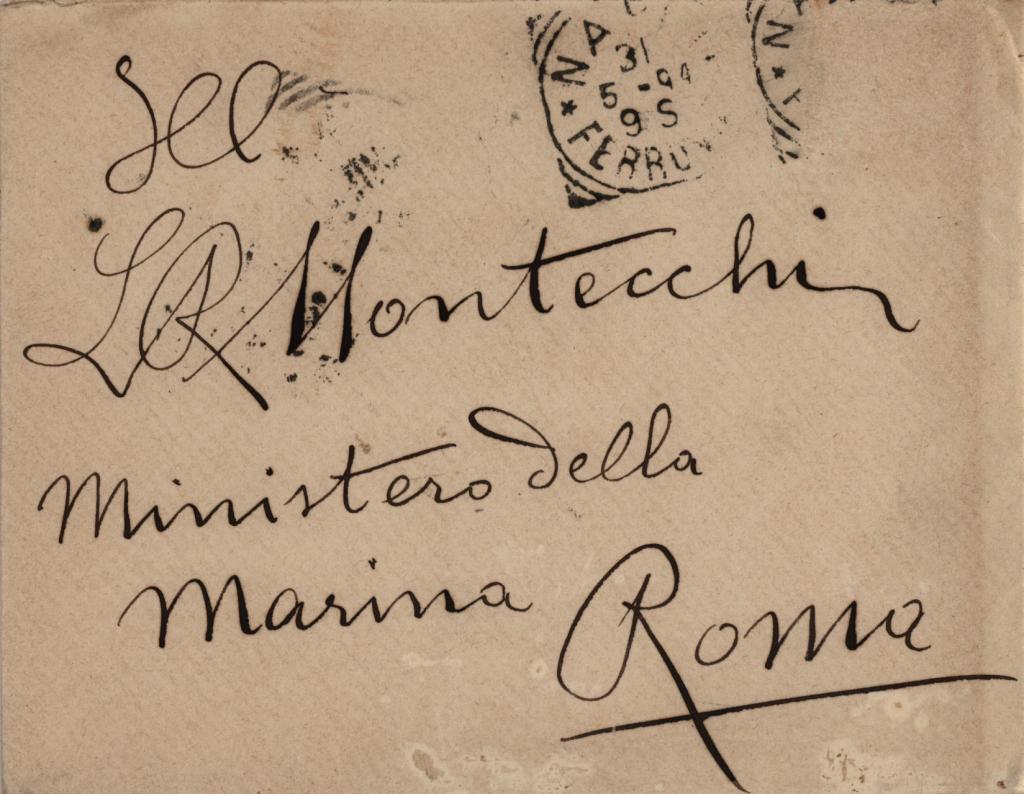 NA
31
5-94
9 S
* FERRO
N * F
All
I. R. Montecchi
Ministero della
Marina Roma